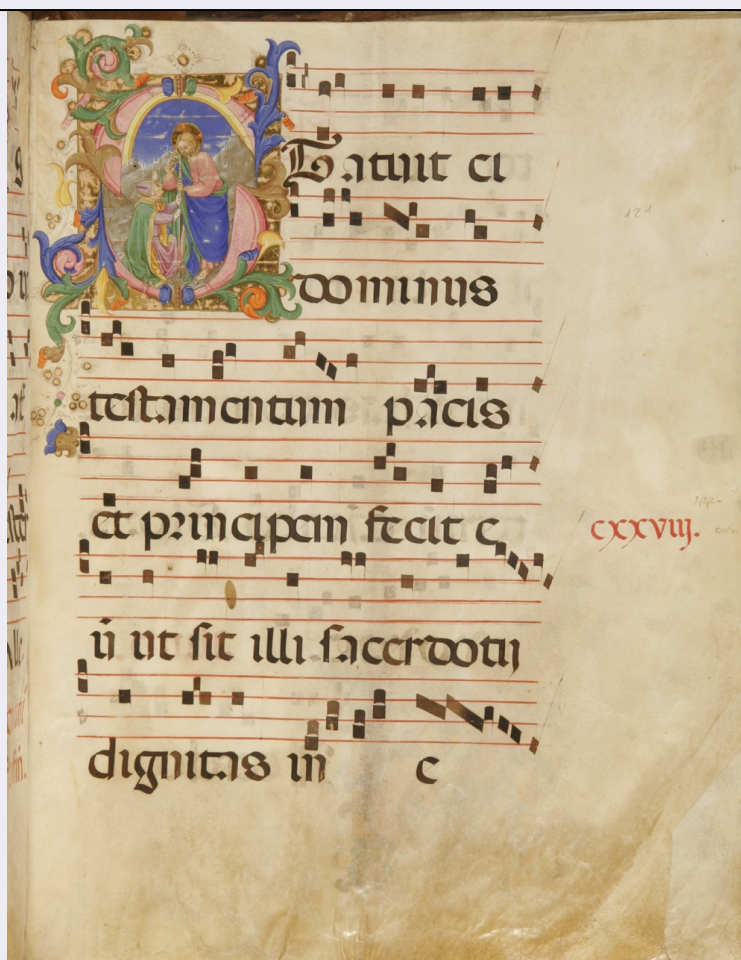 Statuit ei
dominus
testamentum pacis
et principem fecit e
ū ut sit illi sacerdotij
dignitas in e
cxxviij.
121